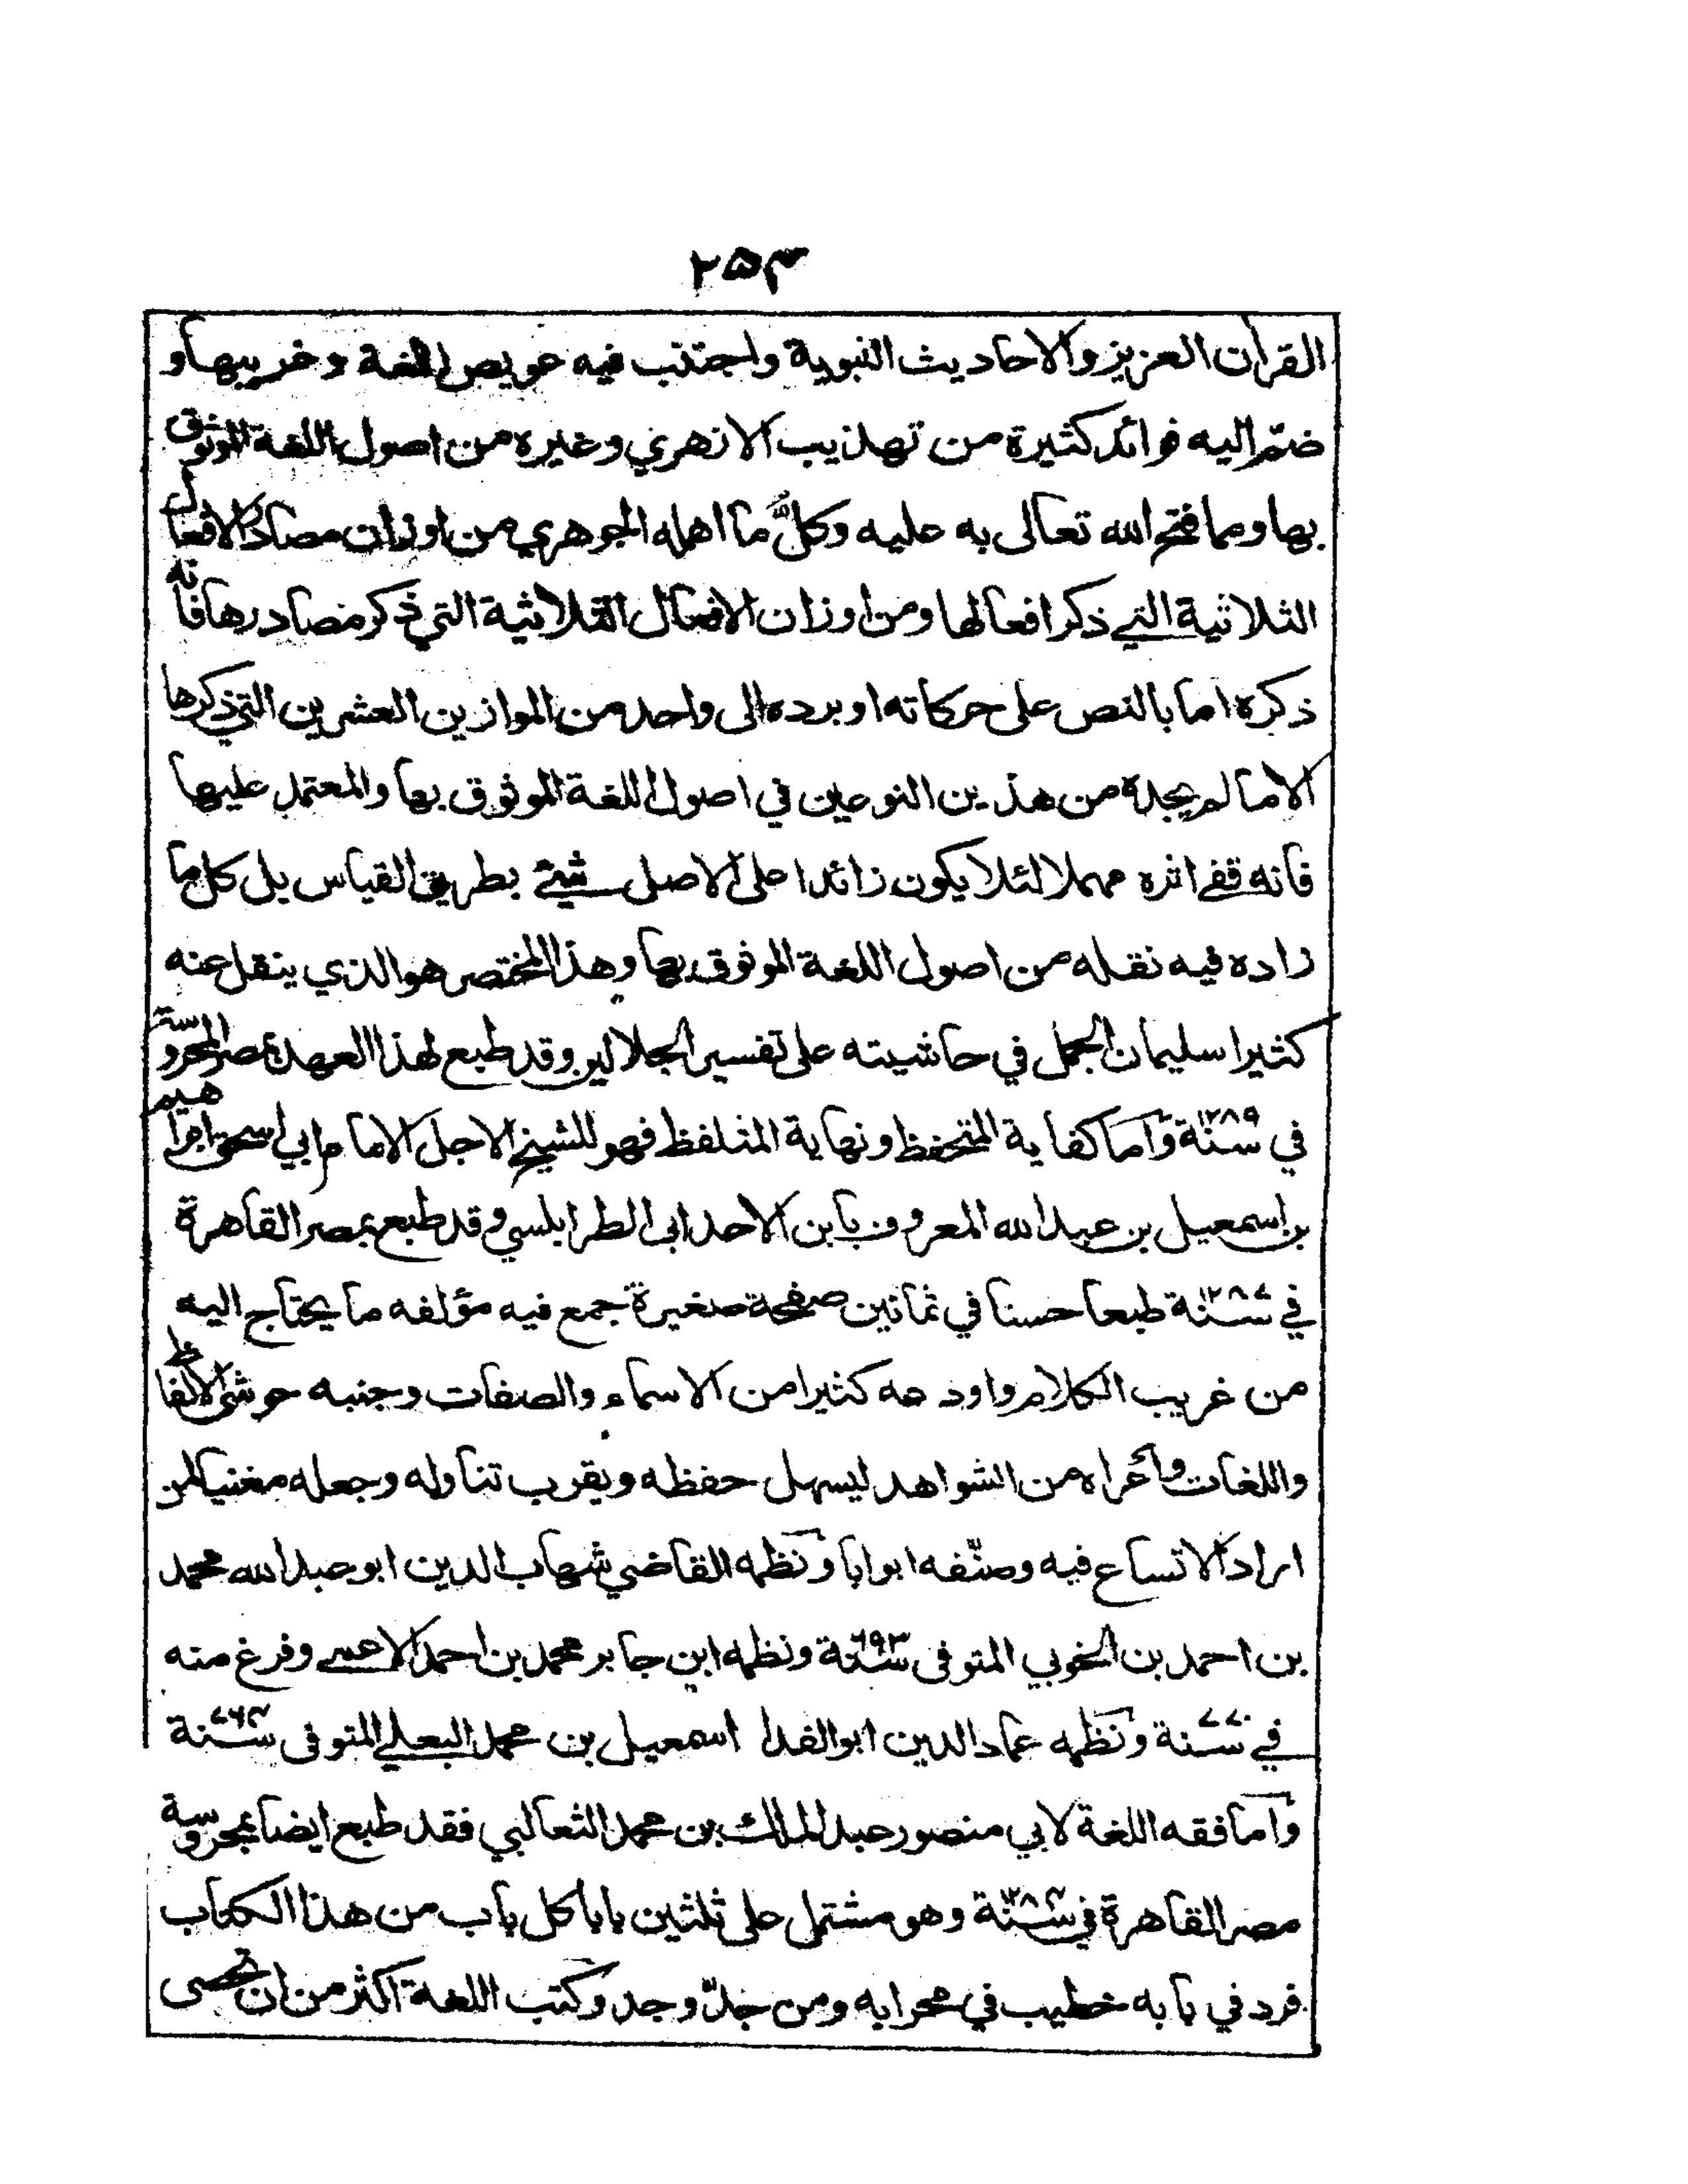 ٢٥٣
القرآن العزيز والاحاديث النبوية واجتنب فيه عويص اللغة وغريبها و
ضمّ اليه فوائد كثيرة من تهذيب الازهري وغيره من اصول اللغة الموثوق
بها ومما فتح الله تعالى به عليه وكلُّ ما اهمله الجوهري من اوزان مصادر الافعال
الثلاثية التي ذكر افعالها ومن اوزان الافعال الثلاثية التي ذكر مصادرها فانه
ذكره اما بالنص على حركاته او برده الى واحد من الموازين العشرين التي ذكرها
الا ما لم يجده من هذين النوعين في اصول اللغة الموثوق بها والمعتمد عليها
فانه قفى اثره مهملا لئلا يكون زائدا على الاصل شيئ بطريق القياس بل كل ما
زاده فيه نقله من اصول اللغة الموثوق بها وهذا المختصر هو الذي ينقل عنه
كثيرا سليمان الجمل في حاشيته على تفسير الجلالين وقد طبع لهذا العهد بمصر المحروسة
في سنة ١٢٨٩ وآما كفاية المتحفظ ونهاية المتلفظ فهو للشيخ الاجل الامام ابي اسحق ابراهيم
بن اسمعيل بن عبد الله المعروف بابن الاجدابي الطرابلسي وقد طبع بمصر القاهرة
في سنة ١٢٨٧ طبعا حسنا في ثمانين صفحة صغيرة جمع فيه مؤلفه ما يحتاج اليه
من غريب الكلام واودعه كثيرا من الاسماء والصفات وجنبه حوشي الالفاظ
واللغات وأعراه من الشواهد ليسهل حفظه ويقرب تناوله وجعله مغنيا لمن
اراد الاتساع فيه وصنّفه ابوابا ونظمه القاضي شهاب الدين ابو عبد الله محمد
بن احمد بن الخوبي المتوفى سنة ٦٩٣ ونظمه ابن جابر محمد بن احمد الاعمى وفرغ منه
في سنة ٧٧٠ ونظمه عماد الدين ابو الفدا اسمعيل بن محمد البعلي المتوفى سنة ٧٦٤
وآما فقه اللغة لابي منصور عبد الملك بن محمد الثعالبي فقد طبع ايضا بمحروسة
مصر القاهرة في سنة وهو مشتمل على ثلثين بابا كل باب من هذا الكتاب
فرد في بابه خطيب في محرابه ومن جدّ وجد وكتب اللغة اكثر من ان تحصى